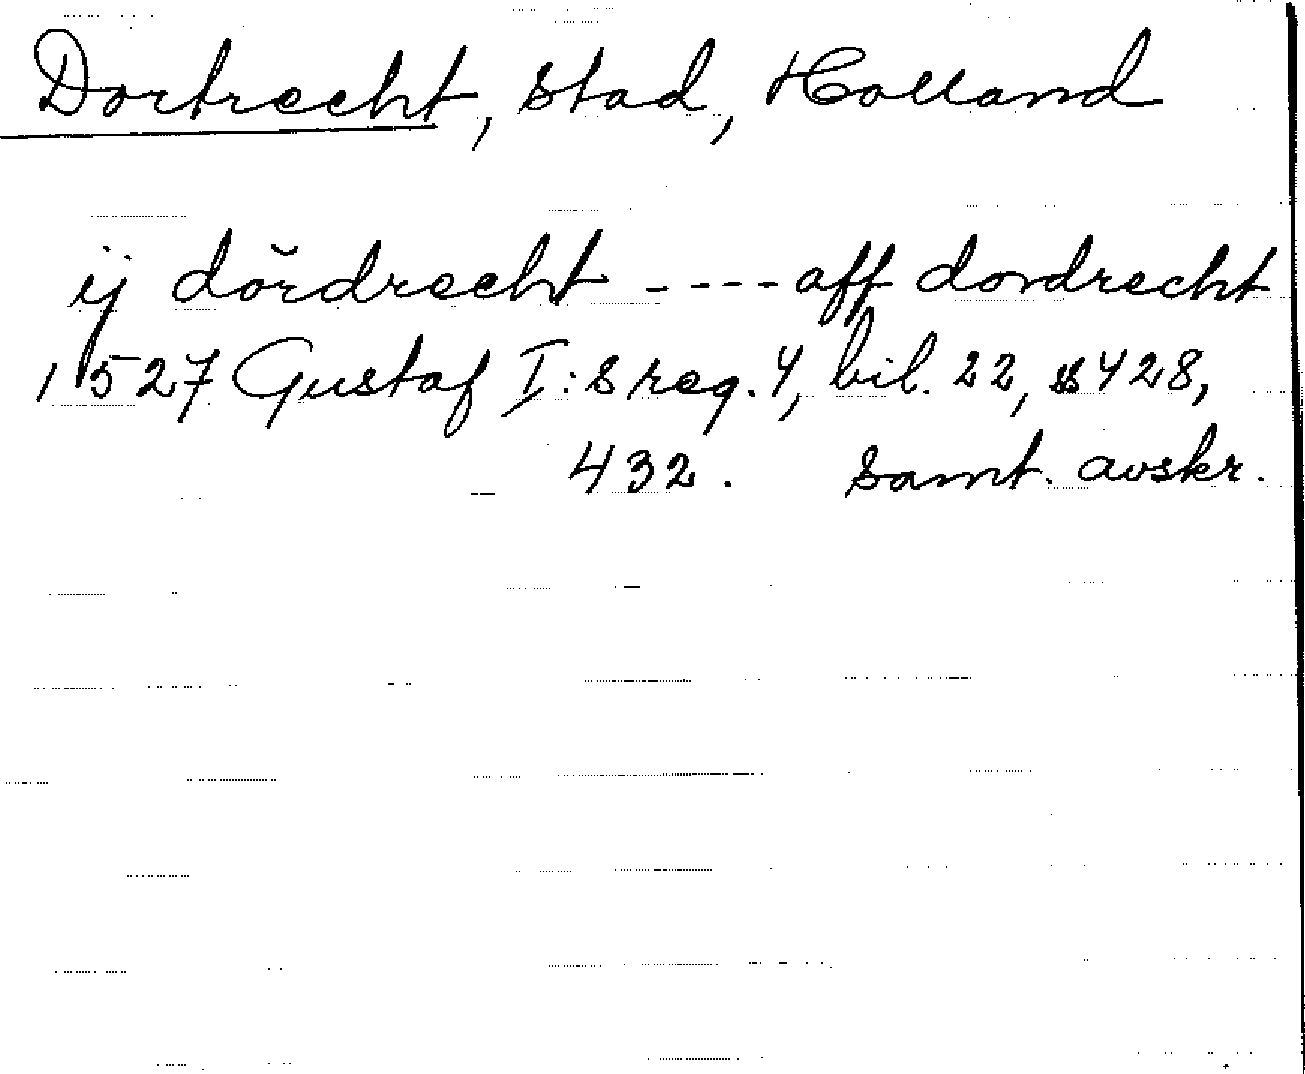 Dortrecht, stad, Holland
ij dŏrdrecht ---- aff dordrecht
1527 Gustaf I:s reg. 4, bil. 22, s 428,
432. samt. avskr.